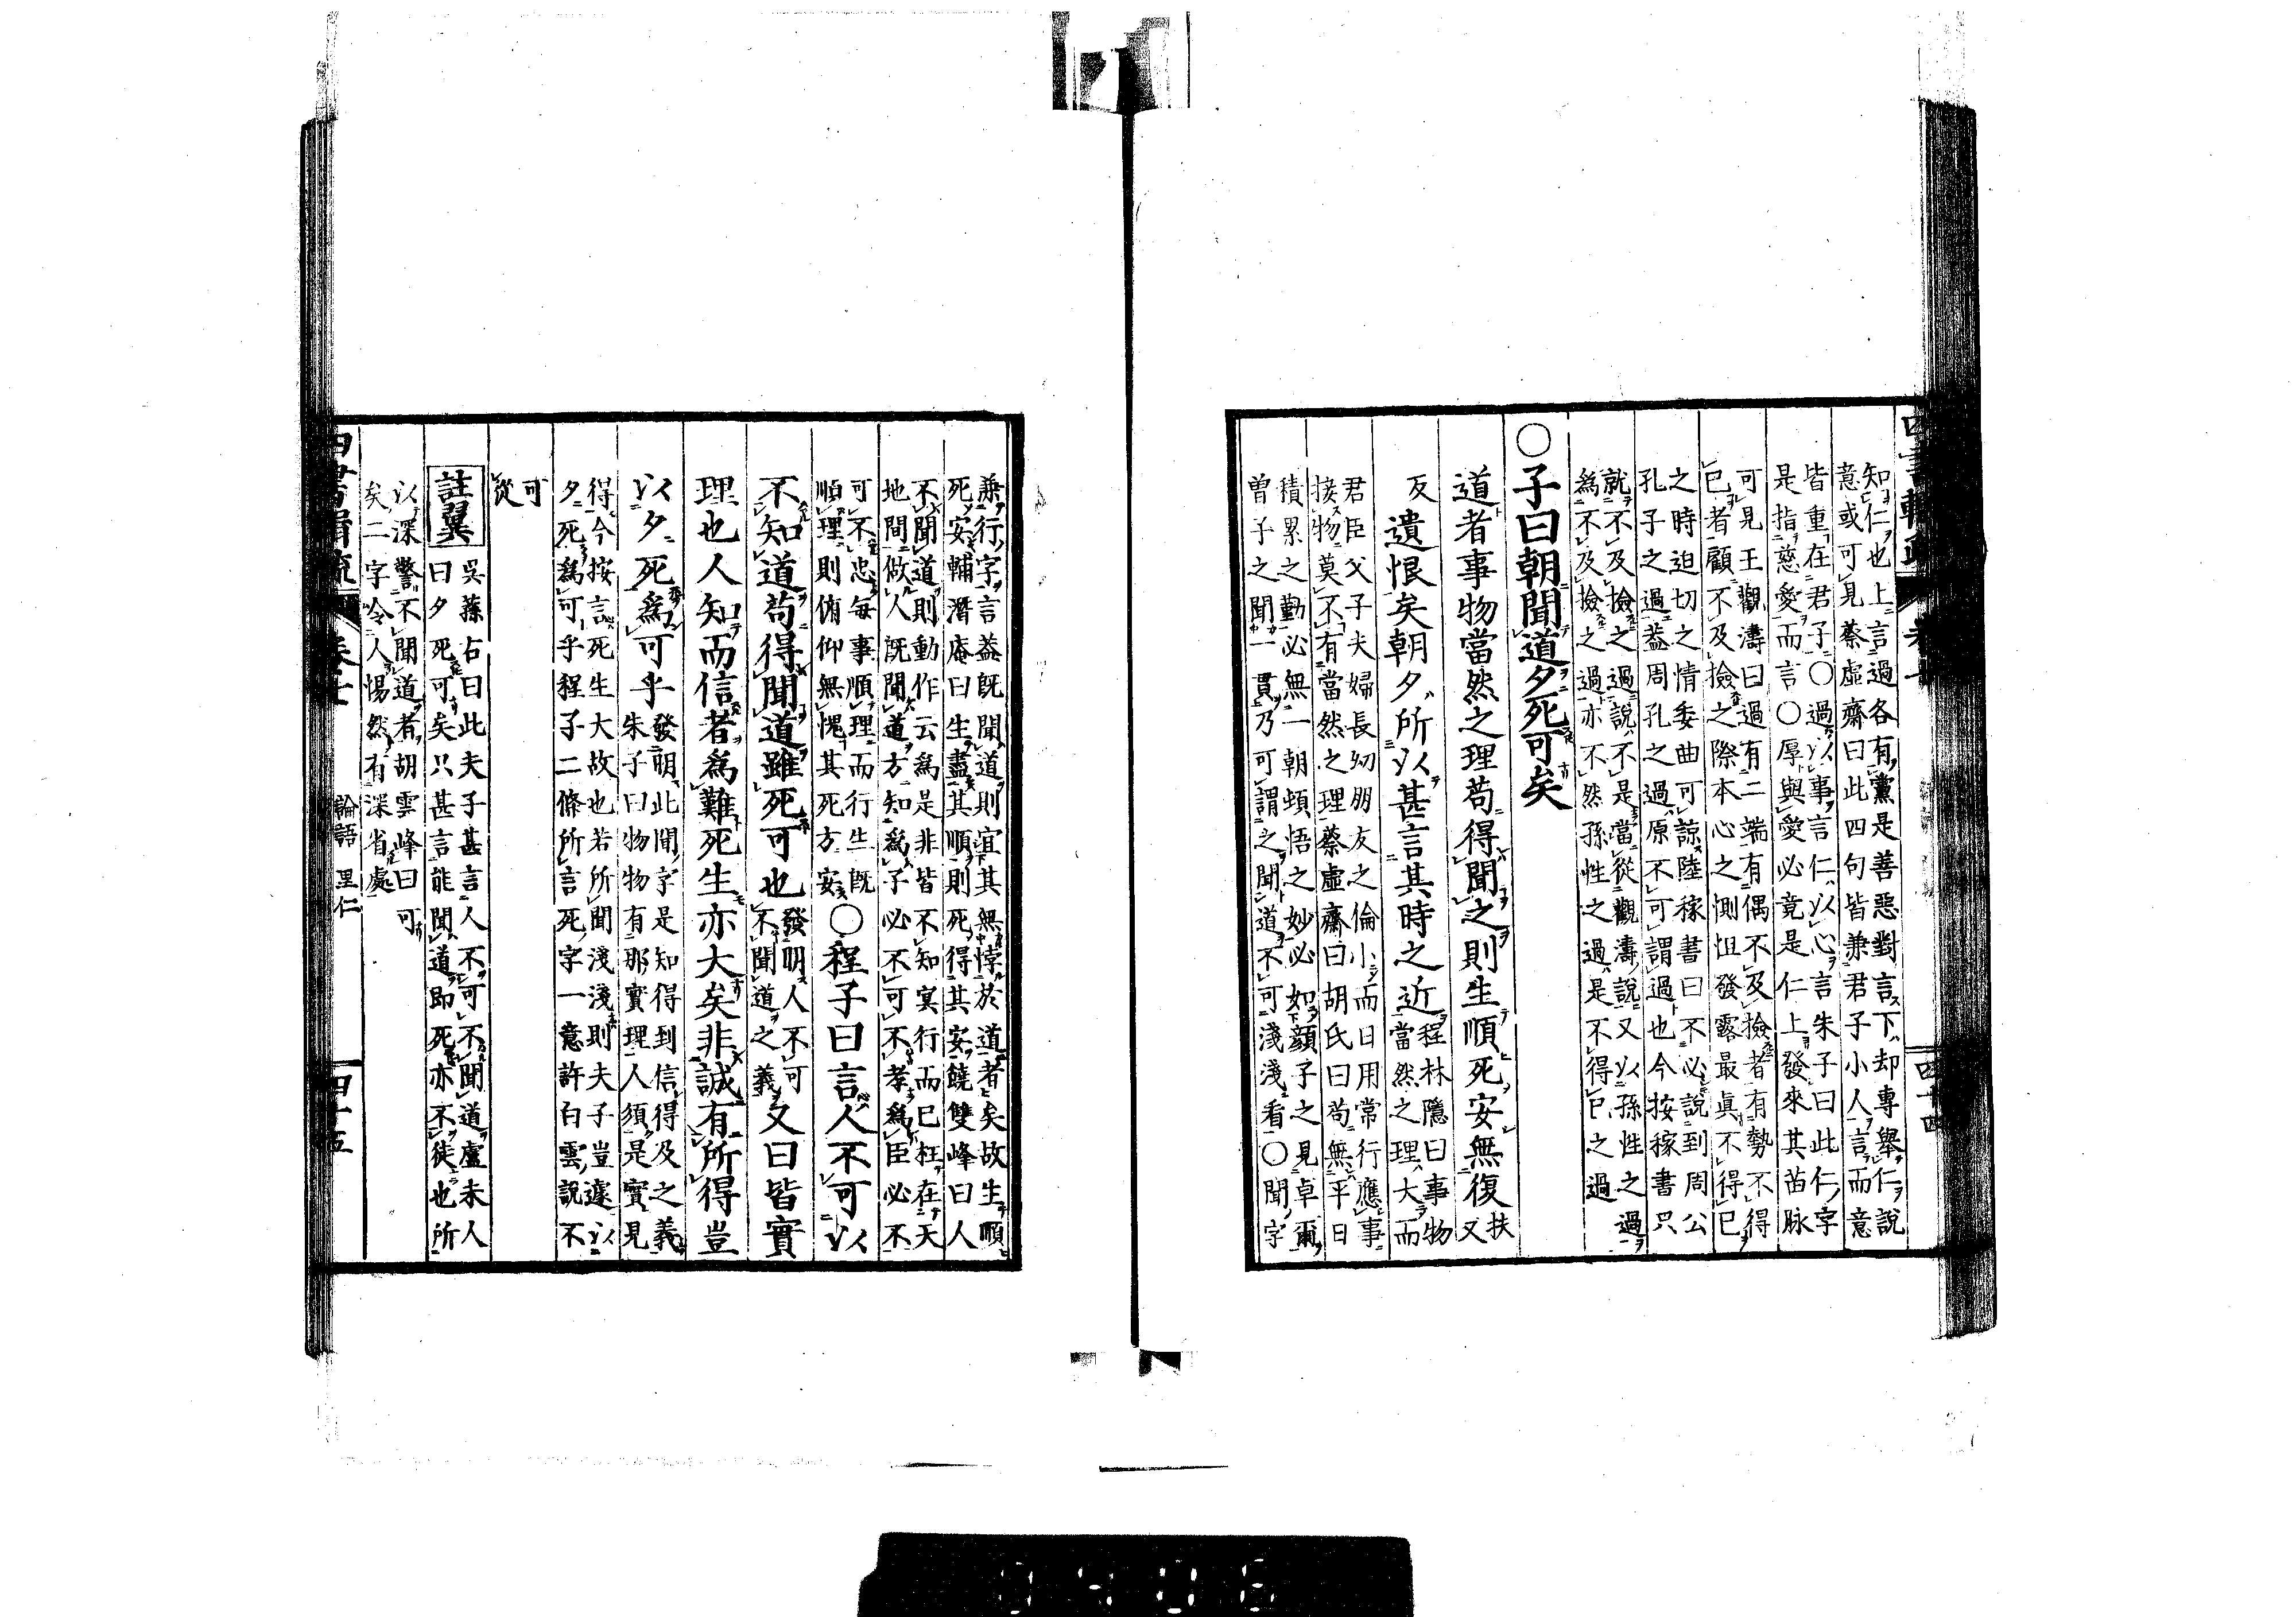 四書輯疏
卷七
四十四
知仁也上言過各有黨是善惡對言下却專舉仁說
意或可見蔡虛齋曰此四句皆兼君子小人言而意
皆重在君子○過以事言仁以心言朱子曰此仁字
是指慈愛而言○厚與愛必竟是仁上發來其苗脉
可見王觀濤曰過有二端有偶不及撿者有勢不得
已者顧不及撿之際本心之惻怛發露最眞不得已
之時迫切之情委曲可諒陸稼書曰不必說到周公
孔子之過蓋周孔之過原不可謂過也今按稼書只
就不及撿之過說不是當從觀濤說又以孫性之過
爲不及撿之過亦不然孫性之過是不得已之過
○子曰朝聞道夕死可矣
道者事物當然之理苟得聞之則生順死安無復
扶
又
反
遺恨矣朝夕所以甚言其時之近
程林隱曰事物
當然之理大而
君臣父子夫婦長幼朋友之倫小而日用常行應事
接物莫不有當然之理蔡虛齋曰胡氏曰苟無平日
積累之勤必無一朝頓悟之妙必如顏子之見卓爾
曾子之聞一貫乃可謂之聞道不可淺淺看○聞字
兼行字言蓋既聞道則宜其無悖於道者矣故生順
死安輔潛庵曰生盡其順則死得其安饒雙峰曰人
不聞道則動作云爲是非皆不知冥行而已枉在天
地間做人既聞道方知爲子必不可不孝爲臣必不
可不忠每事順理而行生既
順理則俯仰無愧其死方安
○程子曰言人不可以
不知道苟得聞道雖死可也
發明人不可
不聞道之義
又曰皆實
理也人知而信者爲難死生亦大矣非誠有所得豈
以夕死爲可乎
發明此聞字是知得到信得及之義
朱子曰物物有那實理人須是實見
得今按言死生大故也若所聞淺淺則夫子豈遽以
夕死爲可乎程子二條所言死字一意許白雲說不
可
從
註翼
吳蓀右曰此夫子甚言人不可不聞道盧未人
曰夕死可矣只甚言能聞道即死亦不徒也所
以深警不聞道者胡雲峰曰可
矣二字令人惕然有深省處
四書輯疏
卷七
論語 里仁
四十五